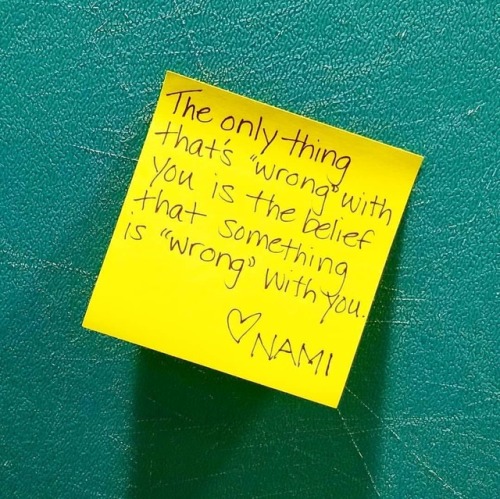 The only thing
that's "wrong" with
you is the belief
that something
is "wrong" with you.
♡NAMI